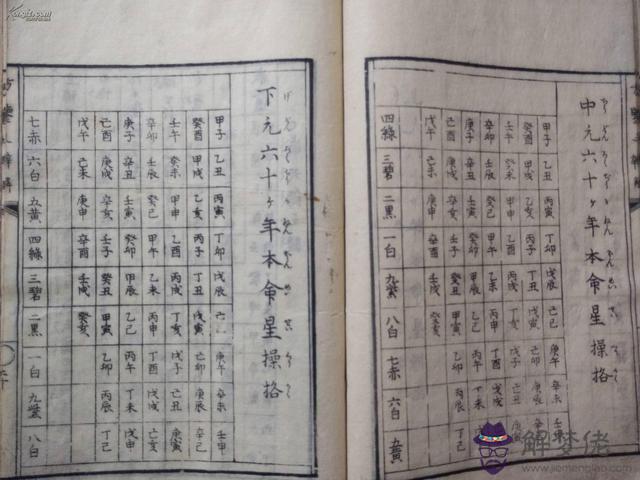 中元六十ヶ年本命星操格
甲子 乙丑 丙寅 丁卯 戊辰 己巳 庚午 辛未 壬申
癸酉 甲戌 乙亥 丙子 丁丑 戊寅 己卯 庚辰
壬午 癸未 甲申 乙酉 丙戌 丁亥 戊子 己丑 庚寅
辛卯 壬辰 癸巳 甲午 乙未 丙申 丁酉 戊戌
庚子 辛丑 壬寅 癸卯 甲辰 乙巳 丙午 丁未
己酉 庚戌 辛亥 壬子 癸丑 甲寅 乙卯 丙辰 丁巳
戊午 己未 庚申 辛酉 壬戌 癸亥
四綠 三碧 二黒 一白 九紫 八白 七赤 六白 五黄
下元六十ヶ年本命星操格
甲子 乙丑 丙寅 丁卯 戊辰 庚午 辛未 壬申
癸酉 甲戌 乙亥 丙子 丁丑 戊寅 己卯 庚辰 辛巳
壬午 癸未 甲申 乙酉 丙戌 丁亥 戊子 己丑 庚寅
辛卯 壬辰 癸巳 甲午 乙未 丙申 丁酉 戊戌 己亥
庚子 辛丑 壬寅 癸卯 甲辰 乙巳 丙午 丁未 戊申
己酉 庚戌 辛亥 壬子 癸丑 甲寅 乙卯 丙辰 丁巳
戊午 己未 庚申 辛酉 壬戌 癸亥
七赤 六白 五黄 四綠 三碧 二黒 一白 九紫 八白
解梦佬
www.jiemenglao.com